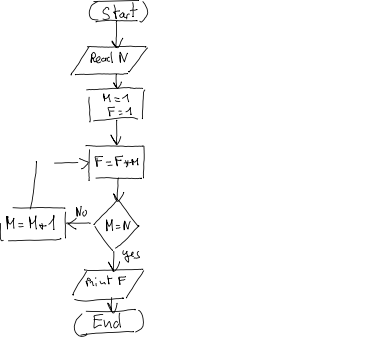 Start
Read N
M=1
F=1
F=F*M
No
M=M+1
M=N
yes
Print F
End